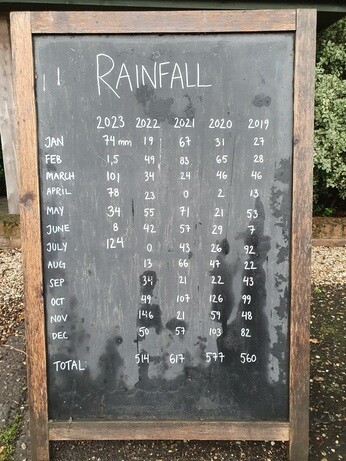 RAINFALL
2023 2022 2021 2020 2019
JAN 74 mm 19 67 31 27
FEB 1,5 49 83 65 28
MARCH 101 34 24 46 46
APRIL 78 23 0 2 13
MAY 34 55 71 21 53
JUNE 8 42 57 29 7
JULY 124 0 43 26 92
AUG 13 66 47 22
SEP 34 21 22 43
OCT 49 107 126 99
NOV 146 21 59 48
DEC 50 57 103 82
TOTAL 514 617 577 560